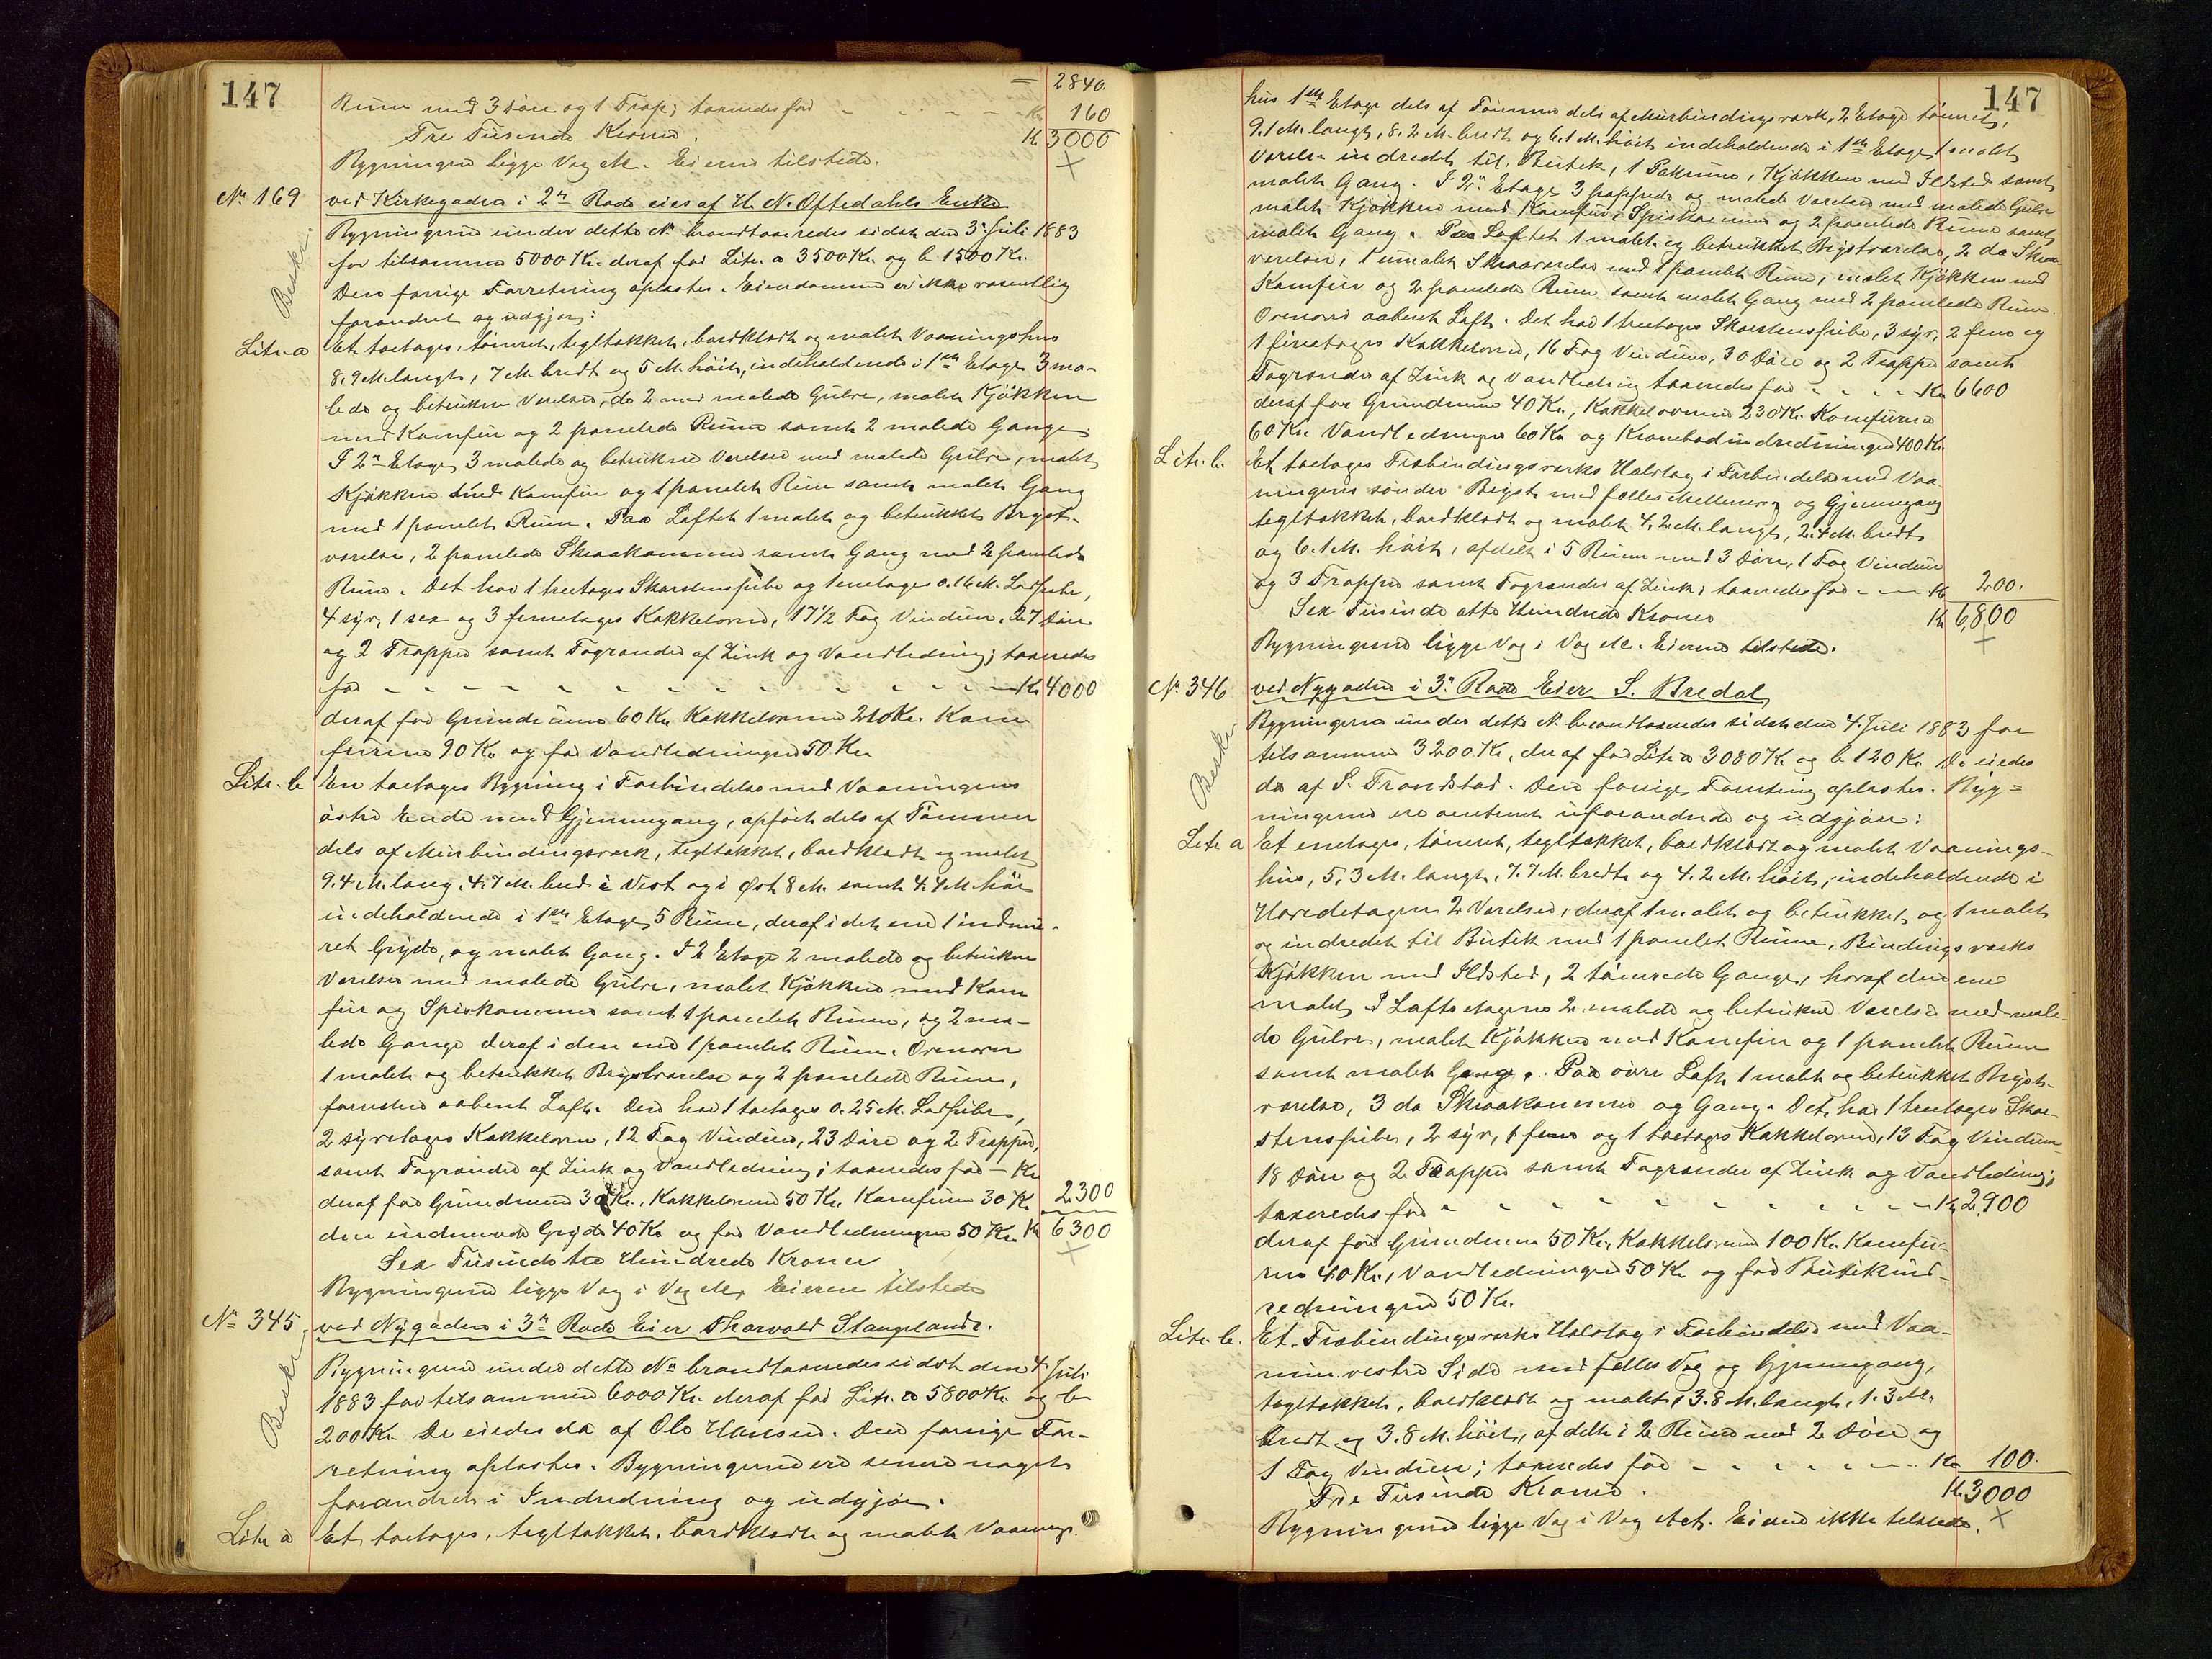 147
= 2840.
Rum med 3 Döre og 1 Trap; taxeredes for - - - - Kr. 160
Tre Tusinde Kroner. Kr. 3000
Bygningerne ligge Væg etc. Eierne tilstede.
No. 169 ved Kirkegaden i 2n Rode eies af H. N. Oftedahls Enke
Beskr.
Bygningerne under dette No. brandtaxeredes sidst den 3. Juli 1883
for tilsammen 5000 Kr. deraf for Litr. a 3500 Kr. og b. 1500 Kr.
Den forrige Forretning oplæstes. Eiendommen er ikke væsentlig
forandret og udgjör:
Litr. a Et toetages, tömret, tegltækket, bordklædt og malet Vaaningshus
8,9 M. langt, 7 M. bredt og 5 M. höit, indeholdende i 1ste Etage 3 ma-
lede og betrukne Værelser, de 2 med malede Gulve, malet Kjökken
med Komfur og 2 panelede Rum samt 2 malede Gange.
I 2n Etage 3 malede og betrukne Værelser med malede Gulve, malet
Kjökken med Komfur og 1 panelet Rum samt malet Gang
med 1 panelet Rum. Paa Loftet 1 malet og betrukket Bryst-
værelse, 2 panelede Skraakammere samt Gang med 2 panelede
Rum. Det har 1 treetages Skorstenspibe og 1 enetages 0.16 M. Lodpibe,
4 syv, 1 sex og 3 femetages Kakkelovne, 17 1/2 Fag Vinduer, 27 Döre
og 2 Trapper samt Tagrender af Zink og Vandledning; taxeredes
for - - - - - - - - - - - - - - Kr. 4000
deraf for Grundmuren 60 Kr. Kakkelovnene 210 Kr. Kom-
furerne 90 Kr. og for Vandledningen 50 Kr.
Litr. b En toetages Bygning i Forbindelse med Vaaningens
östre Ende med Gjennemgang, opfört dels af Tömmer
dels af Murbindingsværk, tegltækket, bordklædt og malet
9.4 M. lang. 4.7 M. bred i Vest og i Öst 8 M. samt 4.4 M. höi
indeholdende i 1ste Etage 5 Rum, deraf i det ene 1 indmu-
ret Gryde, og malet Gang. I 2 Etage 2 malede og betrukne
Værelser med malede Gulve, malet Kjökken med Kom-
fur og Spiskammer samt 1 panelet Rum, og 2 ma-
lede Gange deraf i den ene 1 panelet Rum. Ovenover
1 malet og betrukket Brystværelse og 2 panelede Rum,
forresten aabent Loft. Den har 1 toetages 0.25 M. Lodpibe,
2 syvetages Kakkelovne, 12 Fag Vinduer, 23 Döre og 2 Trapper,
samt Tagrender af Zink og Vandledning; taxeredes for - Kr.
deraf for Grundmuren 30 Kr. Kakkelovnene 50 Kr. Komfuren 30 Kr. 2300
den indmurede Gryde 40 Kr. og for Vandledningen 50 Kr. Kr. 6300
Sex Tusinde tre Hundrede Kroner
Bygningerne ligge Væg i Væg etc. Eieren tilstede
No. 345 ved Nygaden i 3n Rode Eier Thorvald Stangeland.
Beskr.
Bygningerne under dette No. brandtaxeredes sidst den 4. Juli
1883 for tilsammen 6000 Kr. deraf for Litr. a 5800 Kr. og b
200 Kr. De eiedes da af Ole Hansen. Den forrige For-
retning oplæstes. Bygningerne ere senere noget
forandret i Indredning og udgjör.
Litr. a Et toetages, tegltækket, bordklædt og malet Vaanings-
147
hus 1ste Etage dels af Tömmer dels af Murbindingsværk, 2 Etage tömret,
9.1 M. langt, 8.2 M. bredt og 6.1 M. höit indeholdende i 1ste Etage 1 malet
Værelse indredet til Butik, 1 Pakrum, Kjökken med Ildsted samt
malet Gang. I 2n Etage 3 pappede og malede Værelser med malede Gulve
malet Kjökken med Komfur, Spiskammer og 2 panelede Rum samt
malet Gang. Paa Loftet 1 malet og betrukket Brystværelse, 2 do Skraa-
værelser, 1 umalet Skraaværelse med 1 panelet Rum, malet Kjökken med
Komfur og 2 panelede Rum samt malet Gang med 2 panelede Rum.
Ovenover aabent Loft. Det har 1 treetages Skorstenspibe, 3 syv, 2 fem og
1 fireetages Kakkelovne, 16 Fag Vinduer, 30 Döre og 2 Trapper samt
Tagrender af Zink og Vandledning taxeredes for - - - - Kr. 6600
deraf for Grundmuren 40 Kr., Kakkelovnene 230 Kr. Komfurerne
60 Kr. Vandledningen 60 Kr. og Krambodindredningen 400 Kr.
Litr. b. Et toetages Træbindingsværks Halvtag i Forbindelse med Vaa-
ningens söndre Bryst med fælles Mellemvæg og Gjennemgang
tegltækket, bordklædt og malet 4.2 M. langt, 2.4 M. bredt
og 6.1 M. höit, afdelt i 5 Rum med 3 Döre, 1 Fag Vinduer
og 3 Trapper samt Tagrender af Zink; taxeredes for - - - Kr. 200.
Sex Tusinde otte Hundrede Kroner Kr. 6,800
Bygningerne ligge Væg i Væg etc. Eierne tilstede.
No. 346 ved Nygaden i 3n Rode Eier S. Bredal
Beskr.
Bygningerne under dette No. brandtaxeredes sidst den 4. Juli 1883 for
tilsammen 3200 Kr., deraf for Litr. a 3080 Kr. og b 120 Kr. De eiedes
da af S. Trondstad. Den forrige Forretning oplæstes. Byg=
ningerne ere omtrent uforandrede og udgjöre:
Litr. a Et enetages, tömret, tegltækket, bordklædt og malet Vaanings-
hus, 5,3 M. langt, 7.7 M. bredt og 4.2 M. höit, indeholdende i
Hovedetagen 2 Værelser, deraf 1 malet og betrukket, og 1 malet
og indredet til Butik med 1 panelet Rum, Bindingsværks
Kjökken med Ildsted, 2 tömrede Gange, hvoraf den ene
malet. I Loftsetagen 2 malede og betrukne Værelser med male-
de Gulve, malet Kjökken med Komfur og 1 panelet Rum
samt malet Gang. Paa övre Loft 1 malet og betrukket Bryst-
værelse, 3 do Skraakammere og Gang. Det har 1 treetages Skor-
stenspibe, 2 syv, 1 fem og 1 toetages Kakkelovne, 13 Fag Vinduer
18 Döre og 2 Trapper samt Tagrender af Zink og Vandledning;
taxeredes for - - - - - - - - - - - Kr. 2,900
deraf for Grundmuren 50 Kr., Kakkelovnene 100 Kr. Komfu-
ren 40 Kr., Vandledningen 50 Kr. og for Butikind-
redningen 50 Kr.
Litr. b. Et Træbindingsværks Halvtag i Forbindelse med Vaa-
nin. vestre Side med fælles Væg og Gjennemgang,
tegltækket, bordklædt og malet, 3.8 M. langt, 1.3 M.
bredt og 3.8 M. höit, afdelt i 2 Rum med 2 Döre og
1 Fag Vinduer; taxeredes for - - - - - - Kr. 100.
Tre Tusinde Kroner. Kr. 3000
Bygningerne ligge Væg i Væg etc. Eieren ikke tilstede.